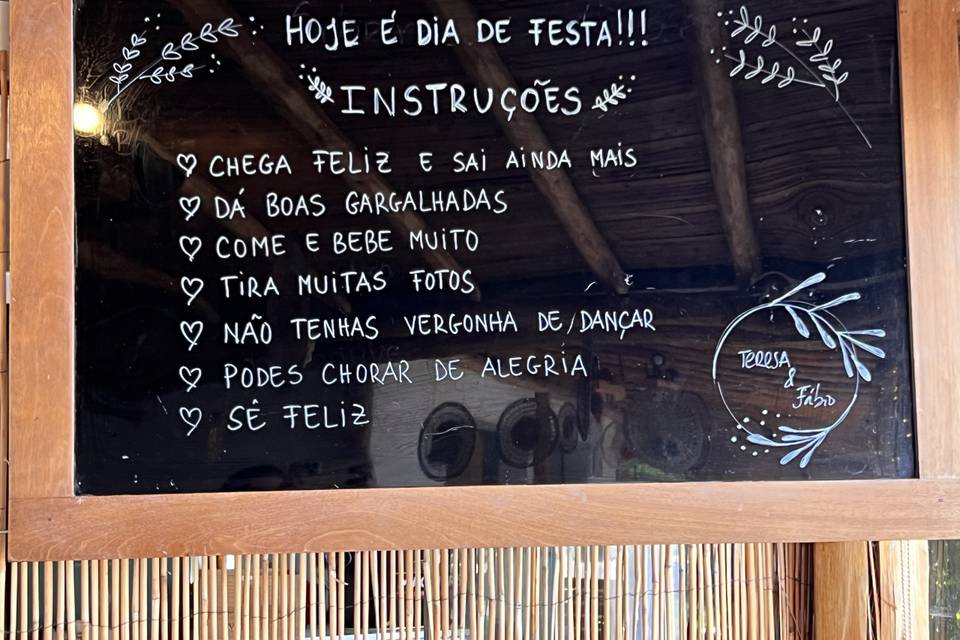 HOJE É DIA DE FESTA!!!
INSTRUÇÕES
CHEGA FELIZ E SAI AINDA MAIS
DÁ BOAS GARGALHADAS
COME E BEBE MUITO
TIRA MUITAS FOTOS
NÃO TENHAS VERGONHA DE DANÇAR
PODES CHORAR DE ALEGRIA
SÊ FELIZ
TERESA
&
Fábio